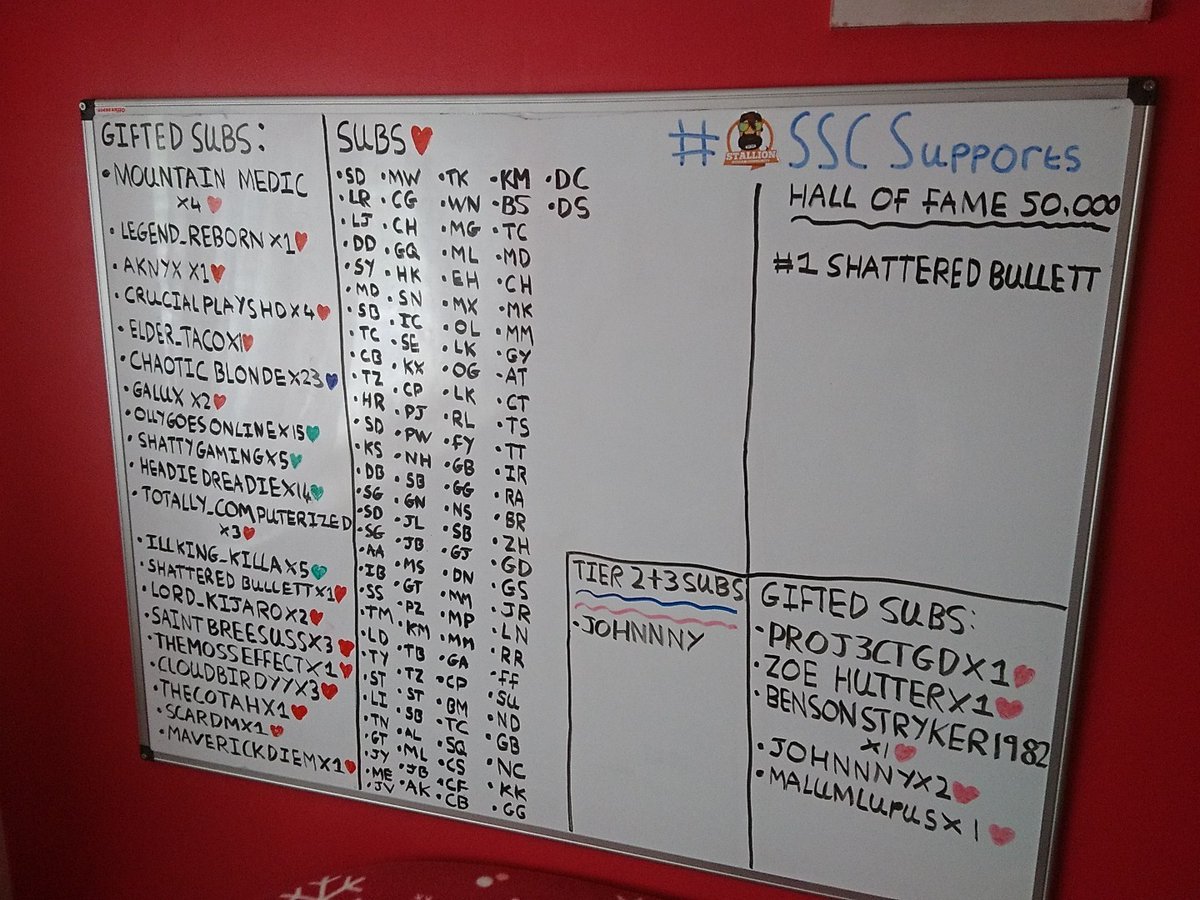 GIFTED SUBS:
• MOUNTAIN MEDIC
x4
• LEGEND_REBORN x1
• AKNYX x1
• CRUCIALPLAYSHD x4
• ELDER_TACO x1
• CHAOTIC BLONDE x23
• GALUX x2
• OLLYGOESONLINE x15
• SHATTYGAMING x5
• HEADIEDREADIE x14
• TOTALLY_COMPUTERIZED
x3
• ILLKING_KILLA x5
• SHATTERED BULLETT x1
• LORD_KIJARO x2
• SAINTBREESUSS x3
• THEMOSSEFFECT x1
• CLOUDBIRDYY x3
• THECOTAH x1
• SCARDM x1
• MAVERICKDIEM x1
SUBS
• SD
• LR
• LJ
• DD
• SY
• MD
• SB
• TC
• CB
• TZ
• HR
• SD
• KS
• DB
• SG
• SD
• SG
• AA
• IB
• SS
• TM
• LD
• TY
• ST
• LI
• TN
• GT
• JY
• ME
• JV
• MW
• CG
• CH
• GQ
• HK
• SN
• IC
• SE
• KX
• CP
• PJ
• PW
• NH
• SB
• GN
• JL
• JB
• MS
• GT
• PZ
• KM
• TB
• TZ
• ST
• SB
• AL
• ML
• JB
• AK
• TK
• WN
• MG
• ML
• EH
• MX
• OL
• LK
• OG
• LK
• RL
• FY
• GB
• GG
• NS
• SB
• GJ
• DN
• MM
• MP
• MM
• GA
• CP
• BM
• TC
• SQ
• CS
• CF
• CB
• KM
• BS
• TC
• MD
• CH
• MK
• MM
• GY
• AT
• CT
• TS
• TT
• IR
• RA
• BR
• ZH
• GD
• GS
• JR
• LN
• RR
• FF
• SU
• ND
• GB
• NC
• KK
• GG
• DC
• DS
# STALLION SSC SUPPORTS
HALL OF FAME 50,000
#1 SHATTERED BULLETT
TIER 2+3 SUBS
• JOHNNNY
GIFTED SUBS:
• PROJ3CTGD x1
• ZOE HUTTER x1
• BENSONSTRYKER1982
x1
• JOHNNNY x2
• MALUMLUPUS x1